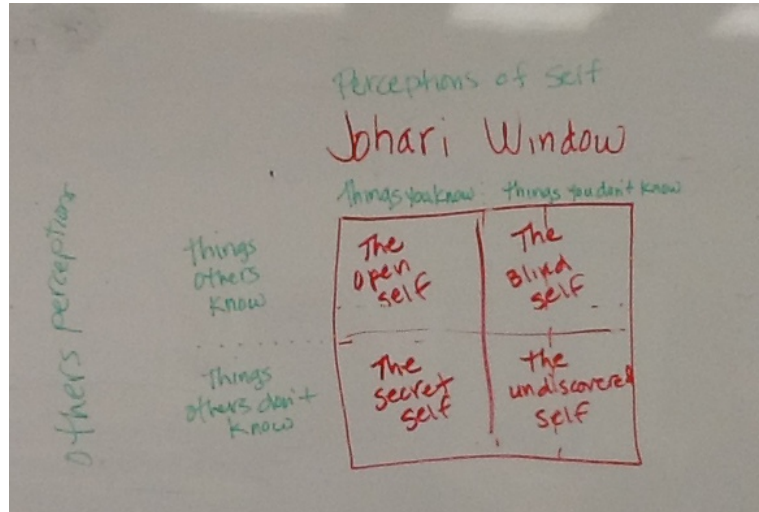 Perceptions of Self
Johari Window
Things you know
things you don't know
others perceptions
things
others
know
The
open
self
The
Blind
self
Things
others don't
know
The
secret
self
the
undiscovered
self